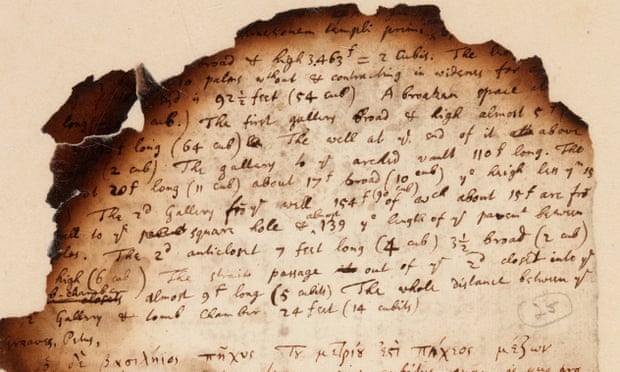 templi primi
broad & high 3,463f = 2 Cubits. The
palms wthout & contracting in wideness for
end is 92½ feet (54 cub) A broaken space at
long cub.) The first gallery broad & high almost 5
long (64 cub) The well at ye end of it above
(2 cub) The gallery to ye arched vault 110f long. The
20f long (11 cub) about 17f broad (10 cub) ye heigh less yn 15
) The 2d Gallery fro ye well 154f (90 cub) of wch about 15f are fro
all to ye square hole & almost 139 ye length of ye pavemt between
The 2d anticloset 7 feet long (4 cub) 3½ broad (2 cub)
high (6 cub) The straite passage out of ye 2d closet into ye
almost 9f long (5 cubits) The whole distance between ye
Gallery & tomb chamber 24 feet (14 cubits)
25
Greaves,
ὁ δὲ βασιλήιος πῆχυς τοῦ μετρίου ἐστὶ πήχεος μέζων